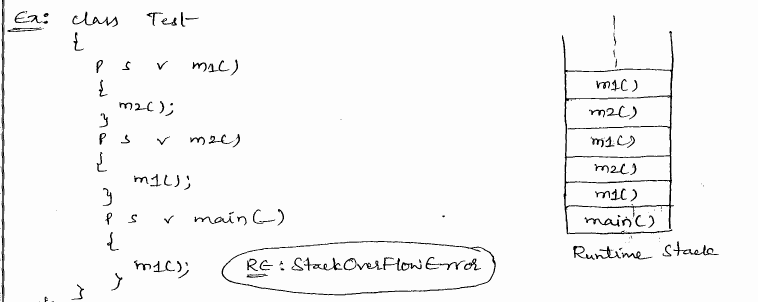 Ex: class Test
{
P s v m1()
{
m2();
}
P s v m2()
{
m1();
}
P s v main(_)
{
m1();
}
}
RE : StackOverFlowError
m1()
m2()
m1()
m2()
m1()
main()
Runtime Stack